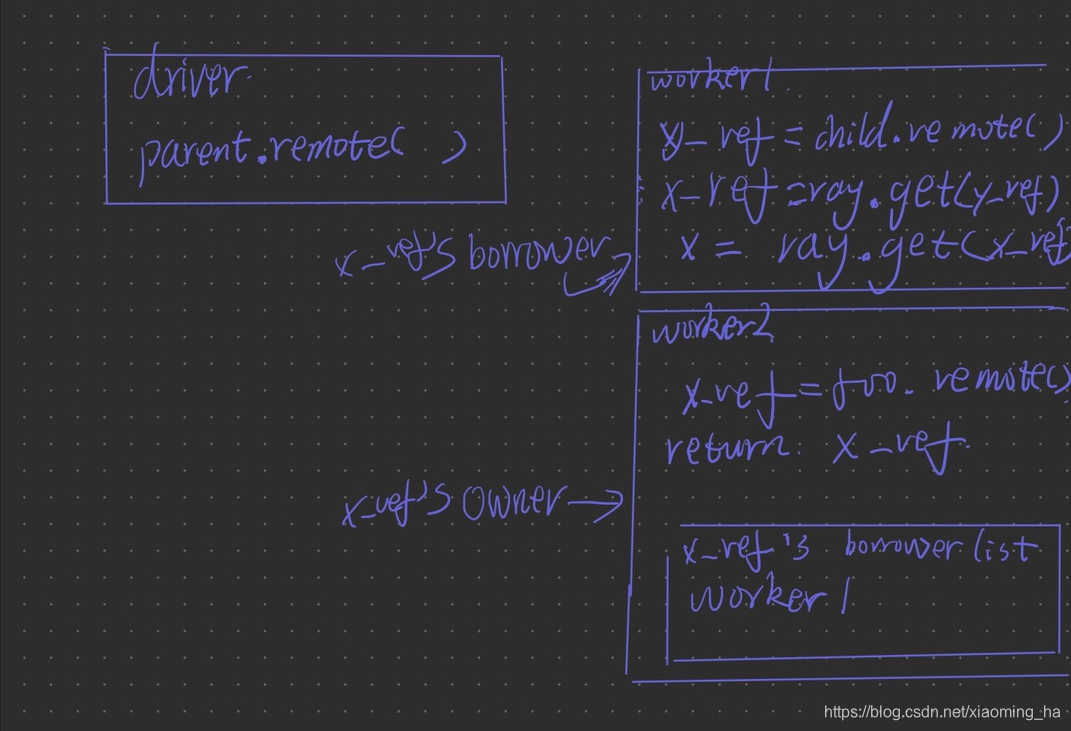 driver
parent.remote( )
worker1
y_ref = child.remote()
x_ref = ray.get(y_ref)
x = ray.get(x_ref
x_ref's borrower
worker2
x_ref = foo.remote()
return x_ref
x_ref's owner
x_ref's borrower list
worker 1
https://blog.csdn.net/xiaoming_ha